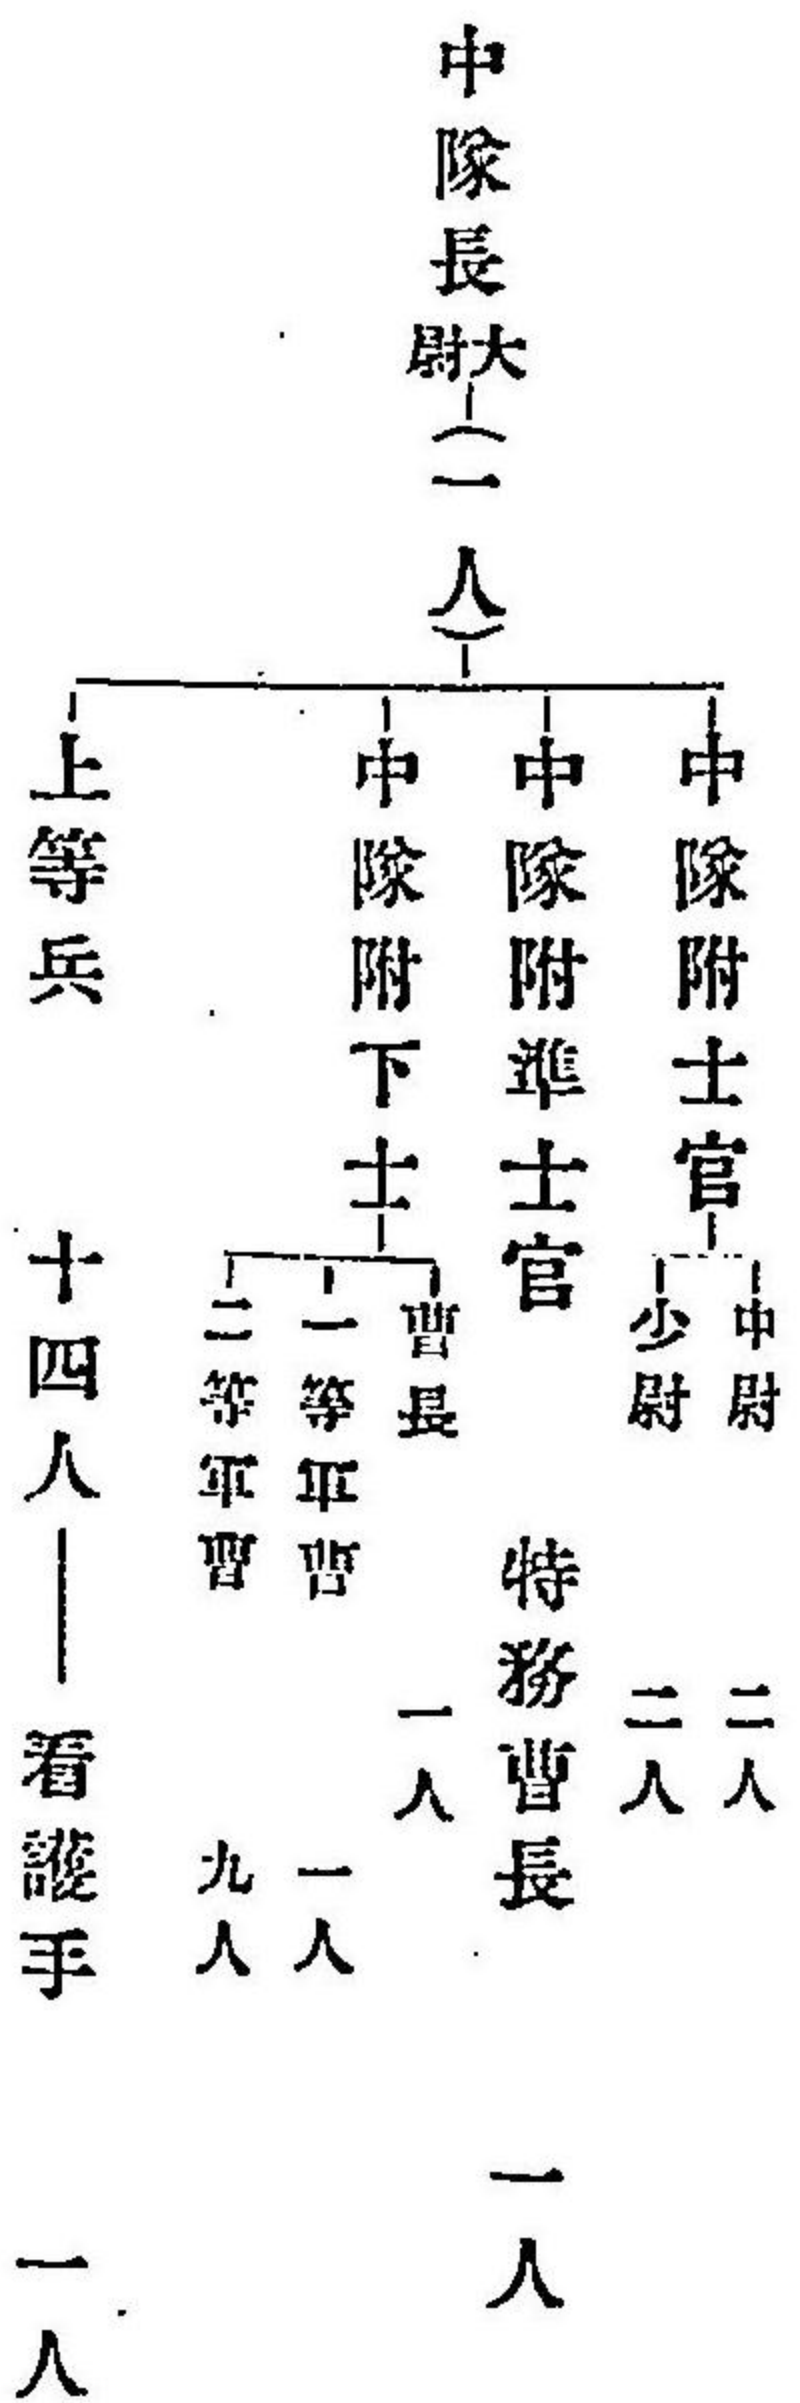 中隊長大尉(一人)
中隊附士官
中尉 二人
少尉 二人
中隊附準士官 特務曹長 一人
中隊附下士
曹長 一人
一等軍曹 一人
二等軍曹 九人
上等兵 十四人—看護手 一人